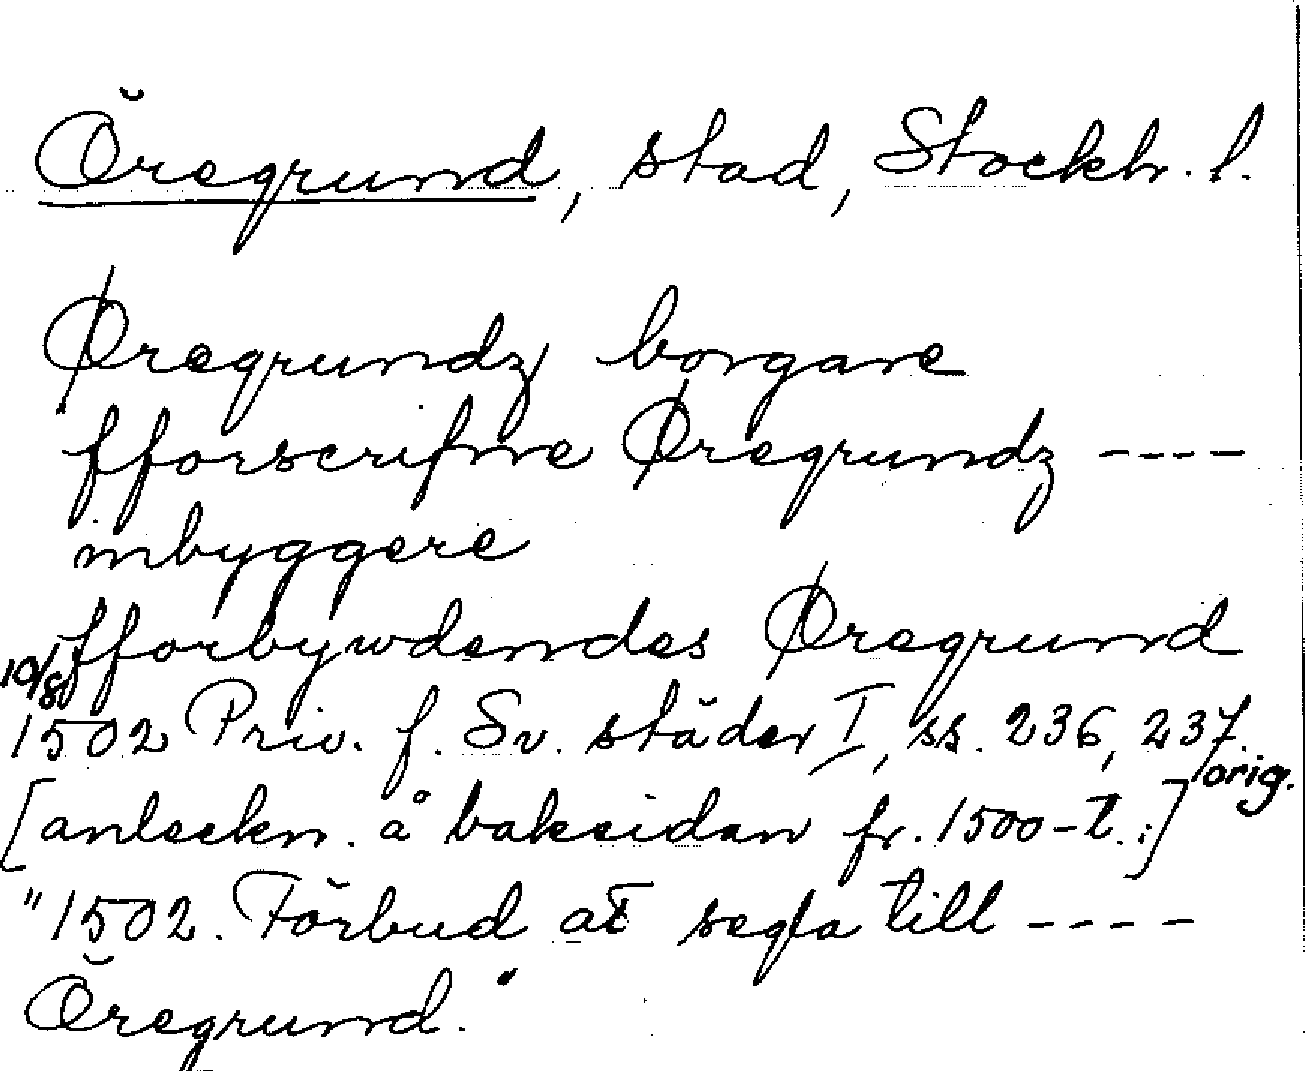 Öregrund, stad, Stockh. l.
Øregrundz borgare
fforscrifne Øregrundz ----
inbyggere
fforbywdendes Øregrund
10/8
1502 Priv. f. Sv. städer I, ss. 236, 237.
orig.
[anteckn. å baksidan fr. 1500-t.:]
"1502. Förbud at segla till ----
Öregrund."